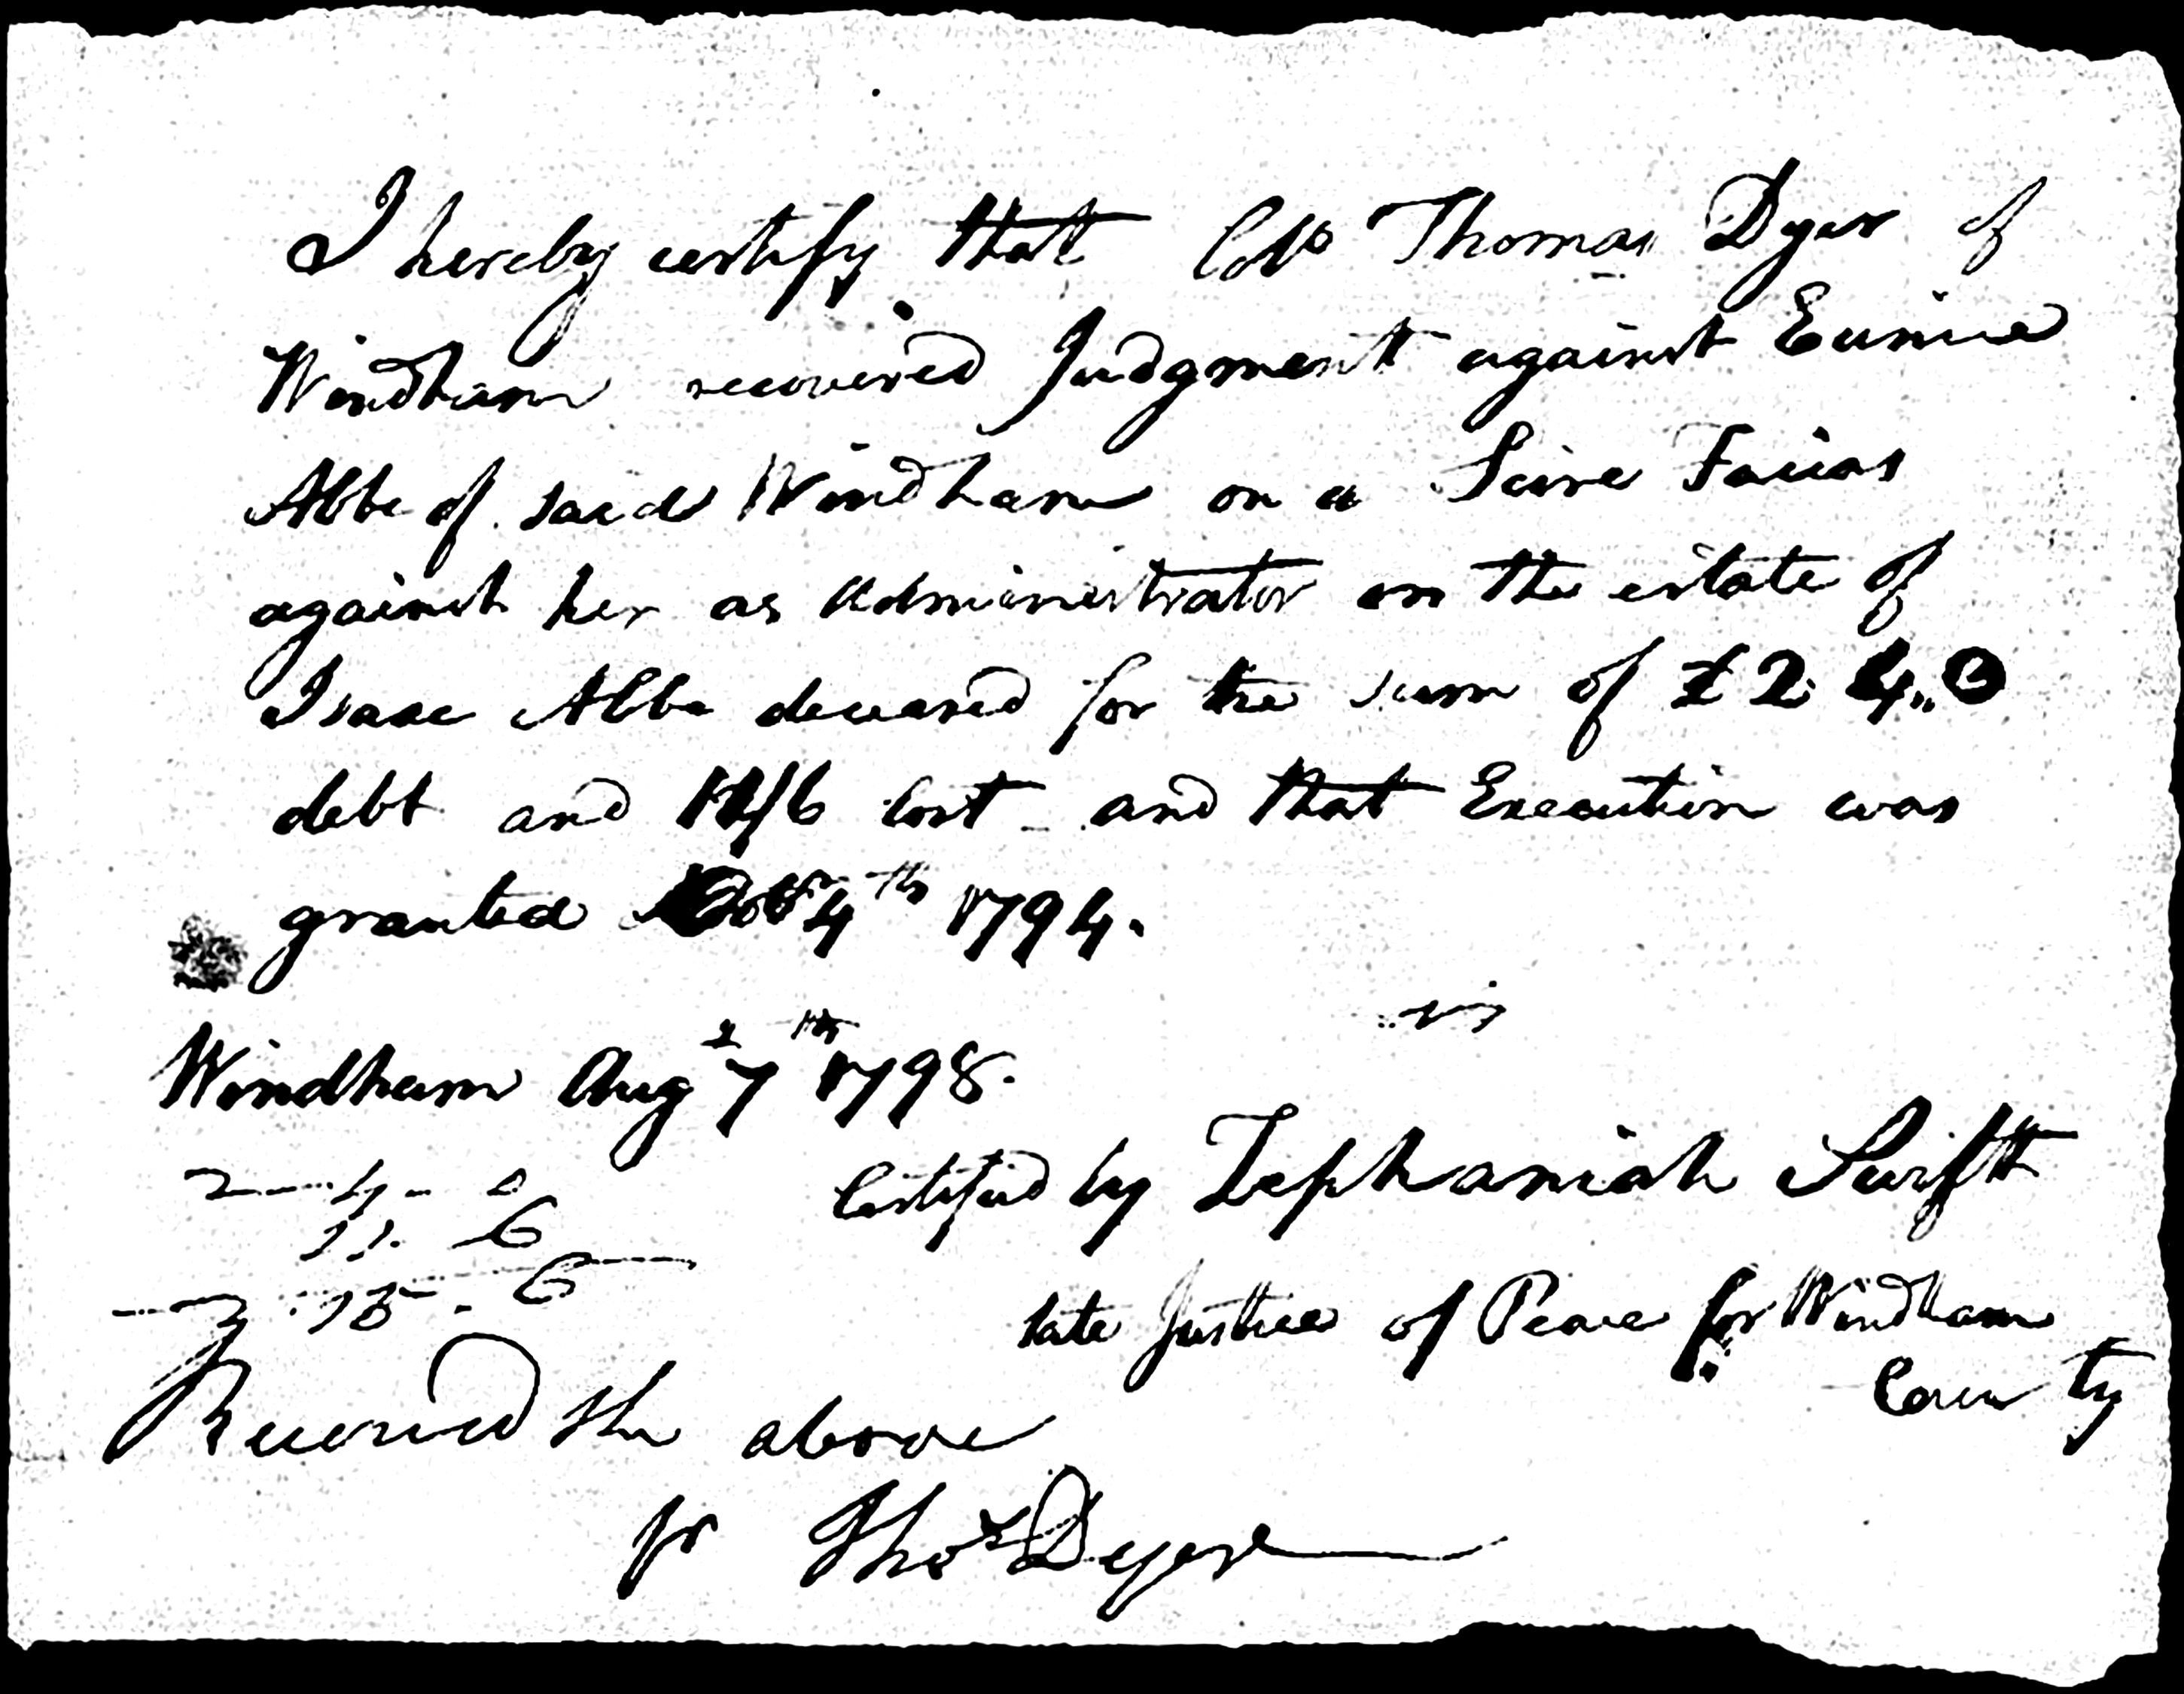 I hereby certify that Colo Thomas Dyer of
Windham recovered Judgment against Eunice
Abbe of said Windham on a Scire Facias
against her as Administrator on the estate of
Isaac Abbe deceased for the sum of £2 4,, 0
debt and 11/6 Cost - and that Execution was
granted Octr 4th 1794.
Windham Aug 27th 1798.
2 - 4 - 0
11. 6
2 . 15 . 6
Certified by Zephaniah Swift
late Justice of Peace for Windham
County
Received the above
pr Thos Dyer